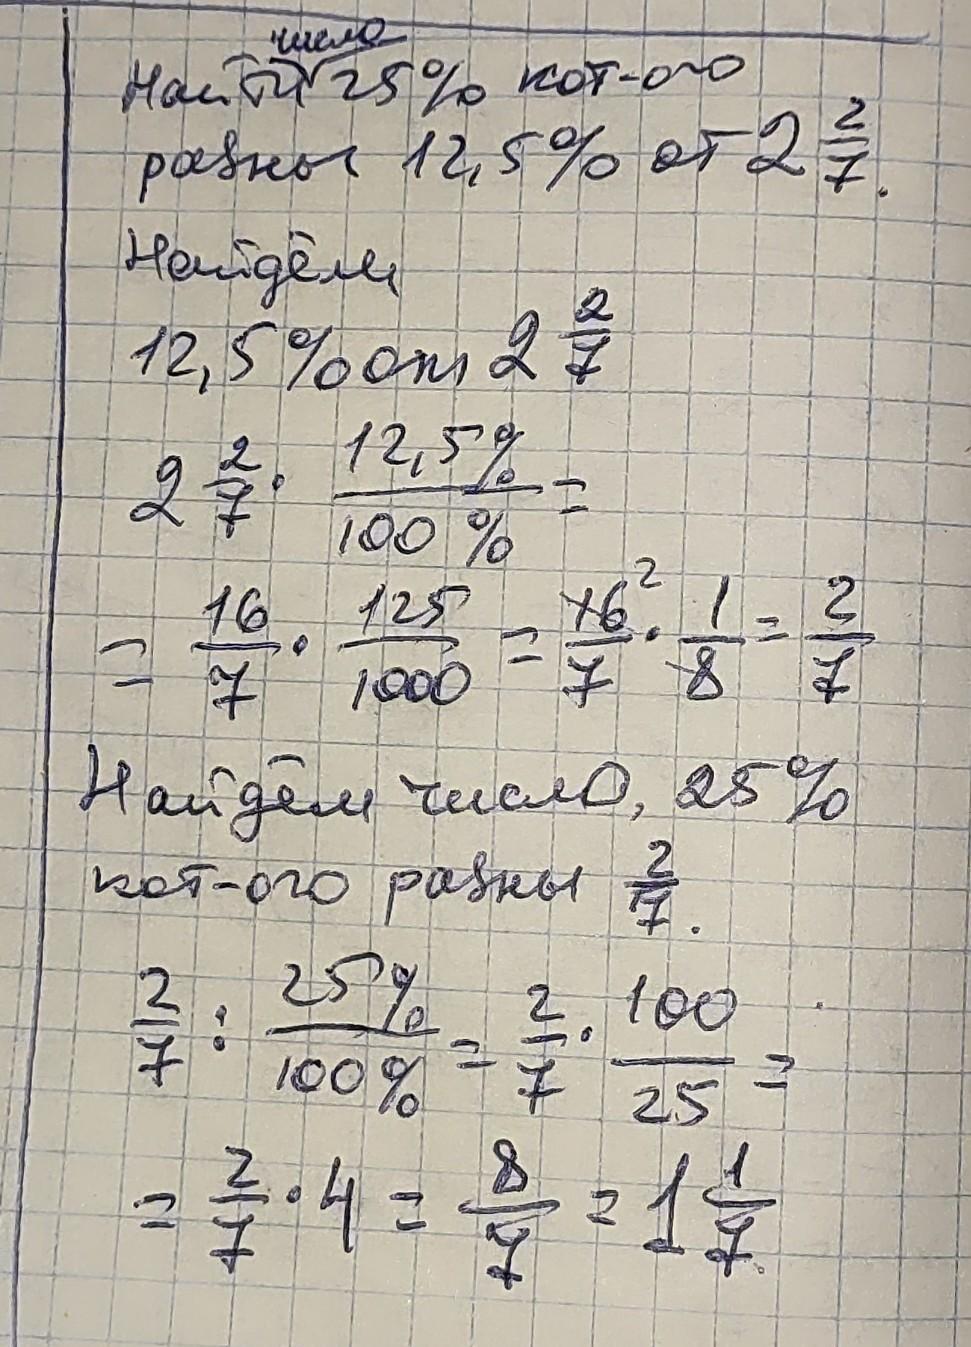 число
Найти 25% кот-ого
равны 12,5% от 2 2/7.
Найдём
12,5% от 2 2/7
2 2/7 · 12,5%/100% =
= 16/7 · 125/1000 = 16/7 ² · 1/8 = 2/7
Найдём число, 25%
кот-ого равны 2/7.
2/7 : 25%/100% = 2/7 · 100/25 =
= 2/7 · 4 = 8/7 = 1 1/7.